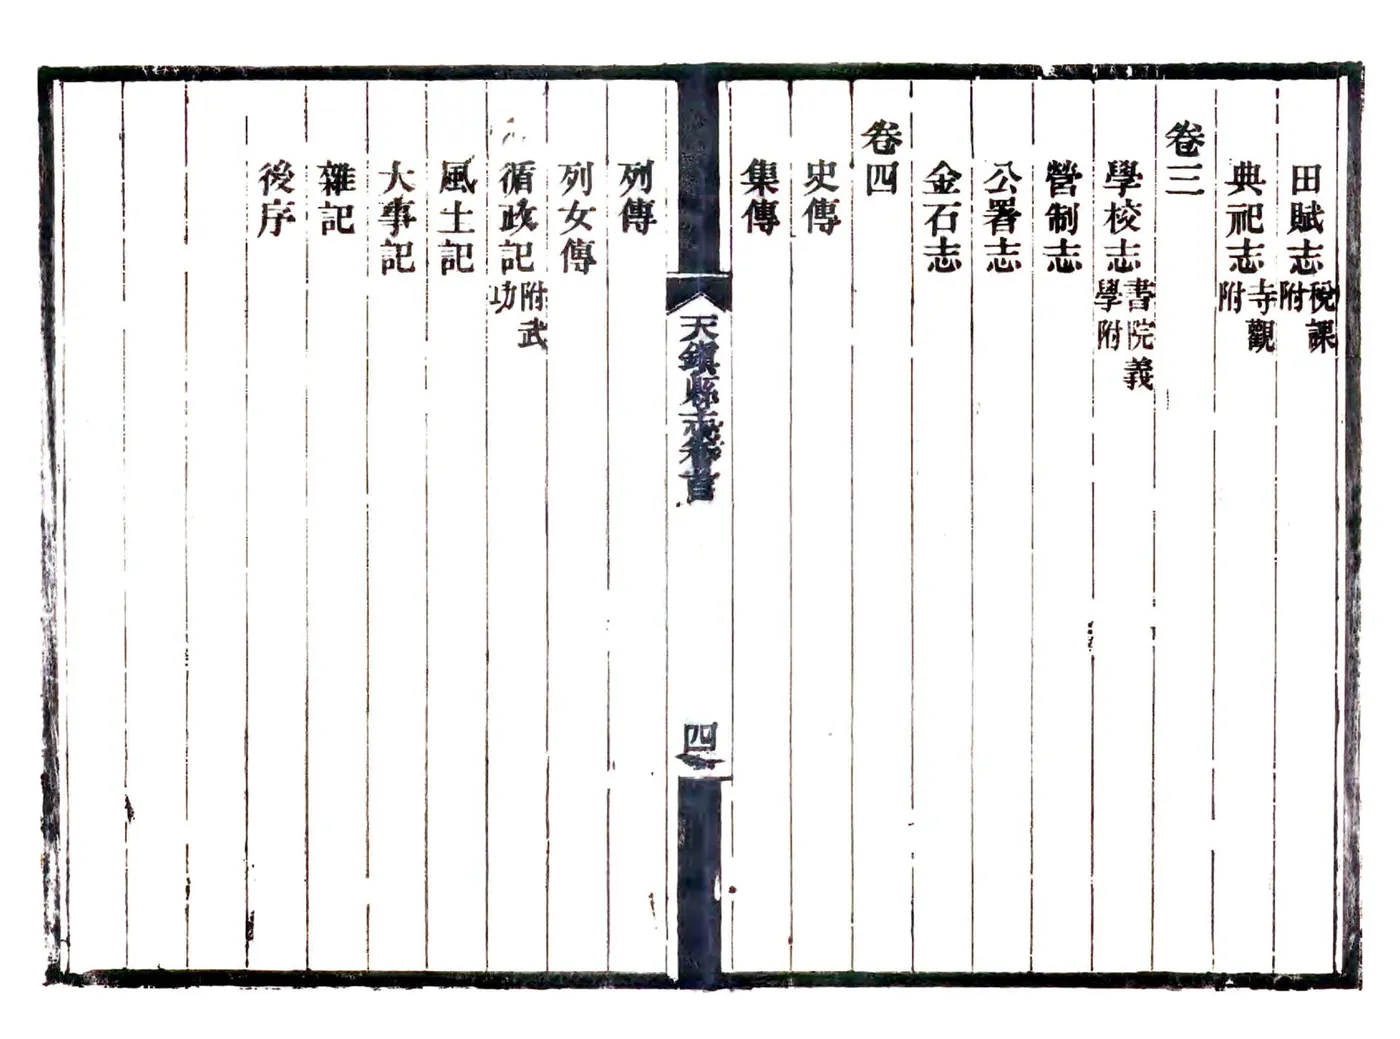 田賦志稅課附
典祀志寺觀附
卷三
學校志書院義學附
營制志
公署志
金石志
卷四
史傳
集傳
天鎮縣志卷首
四
列傳
列女傳
循政記附武功
風土記
大事記
雜記
後序